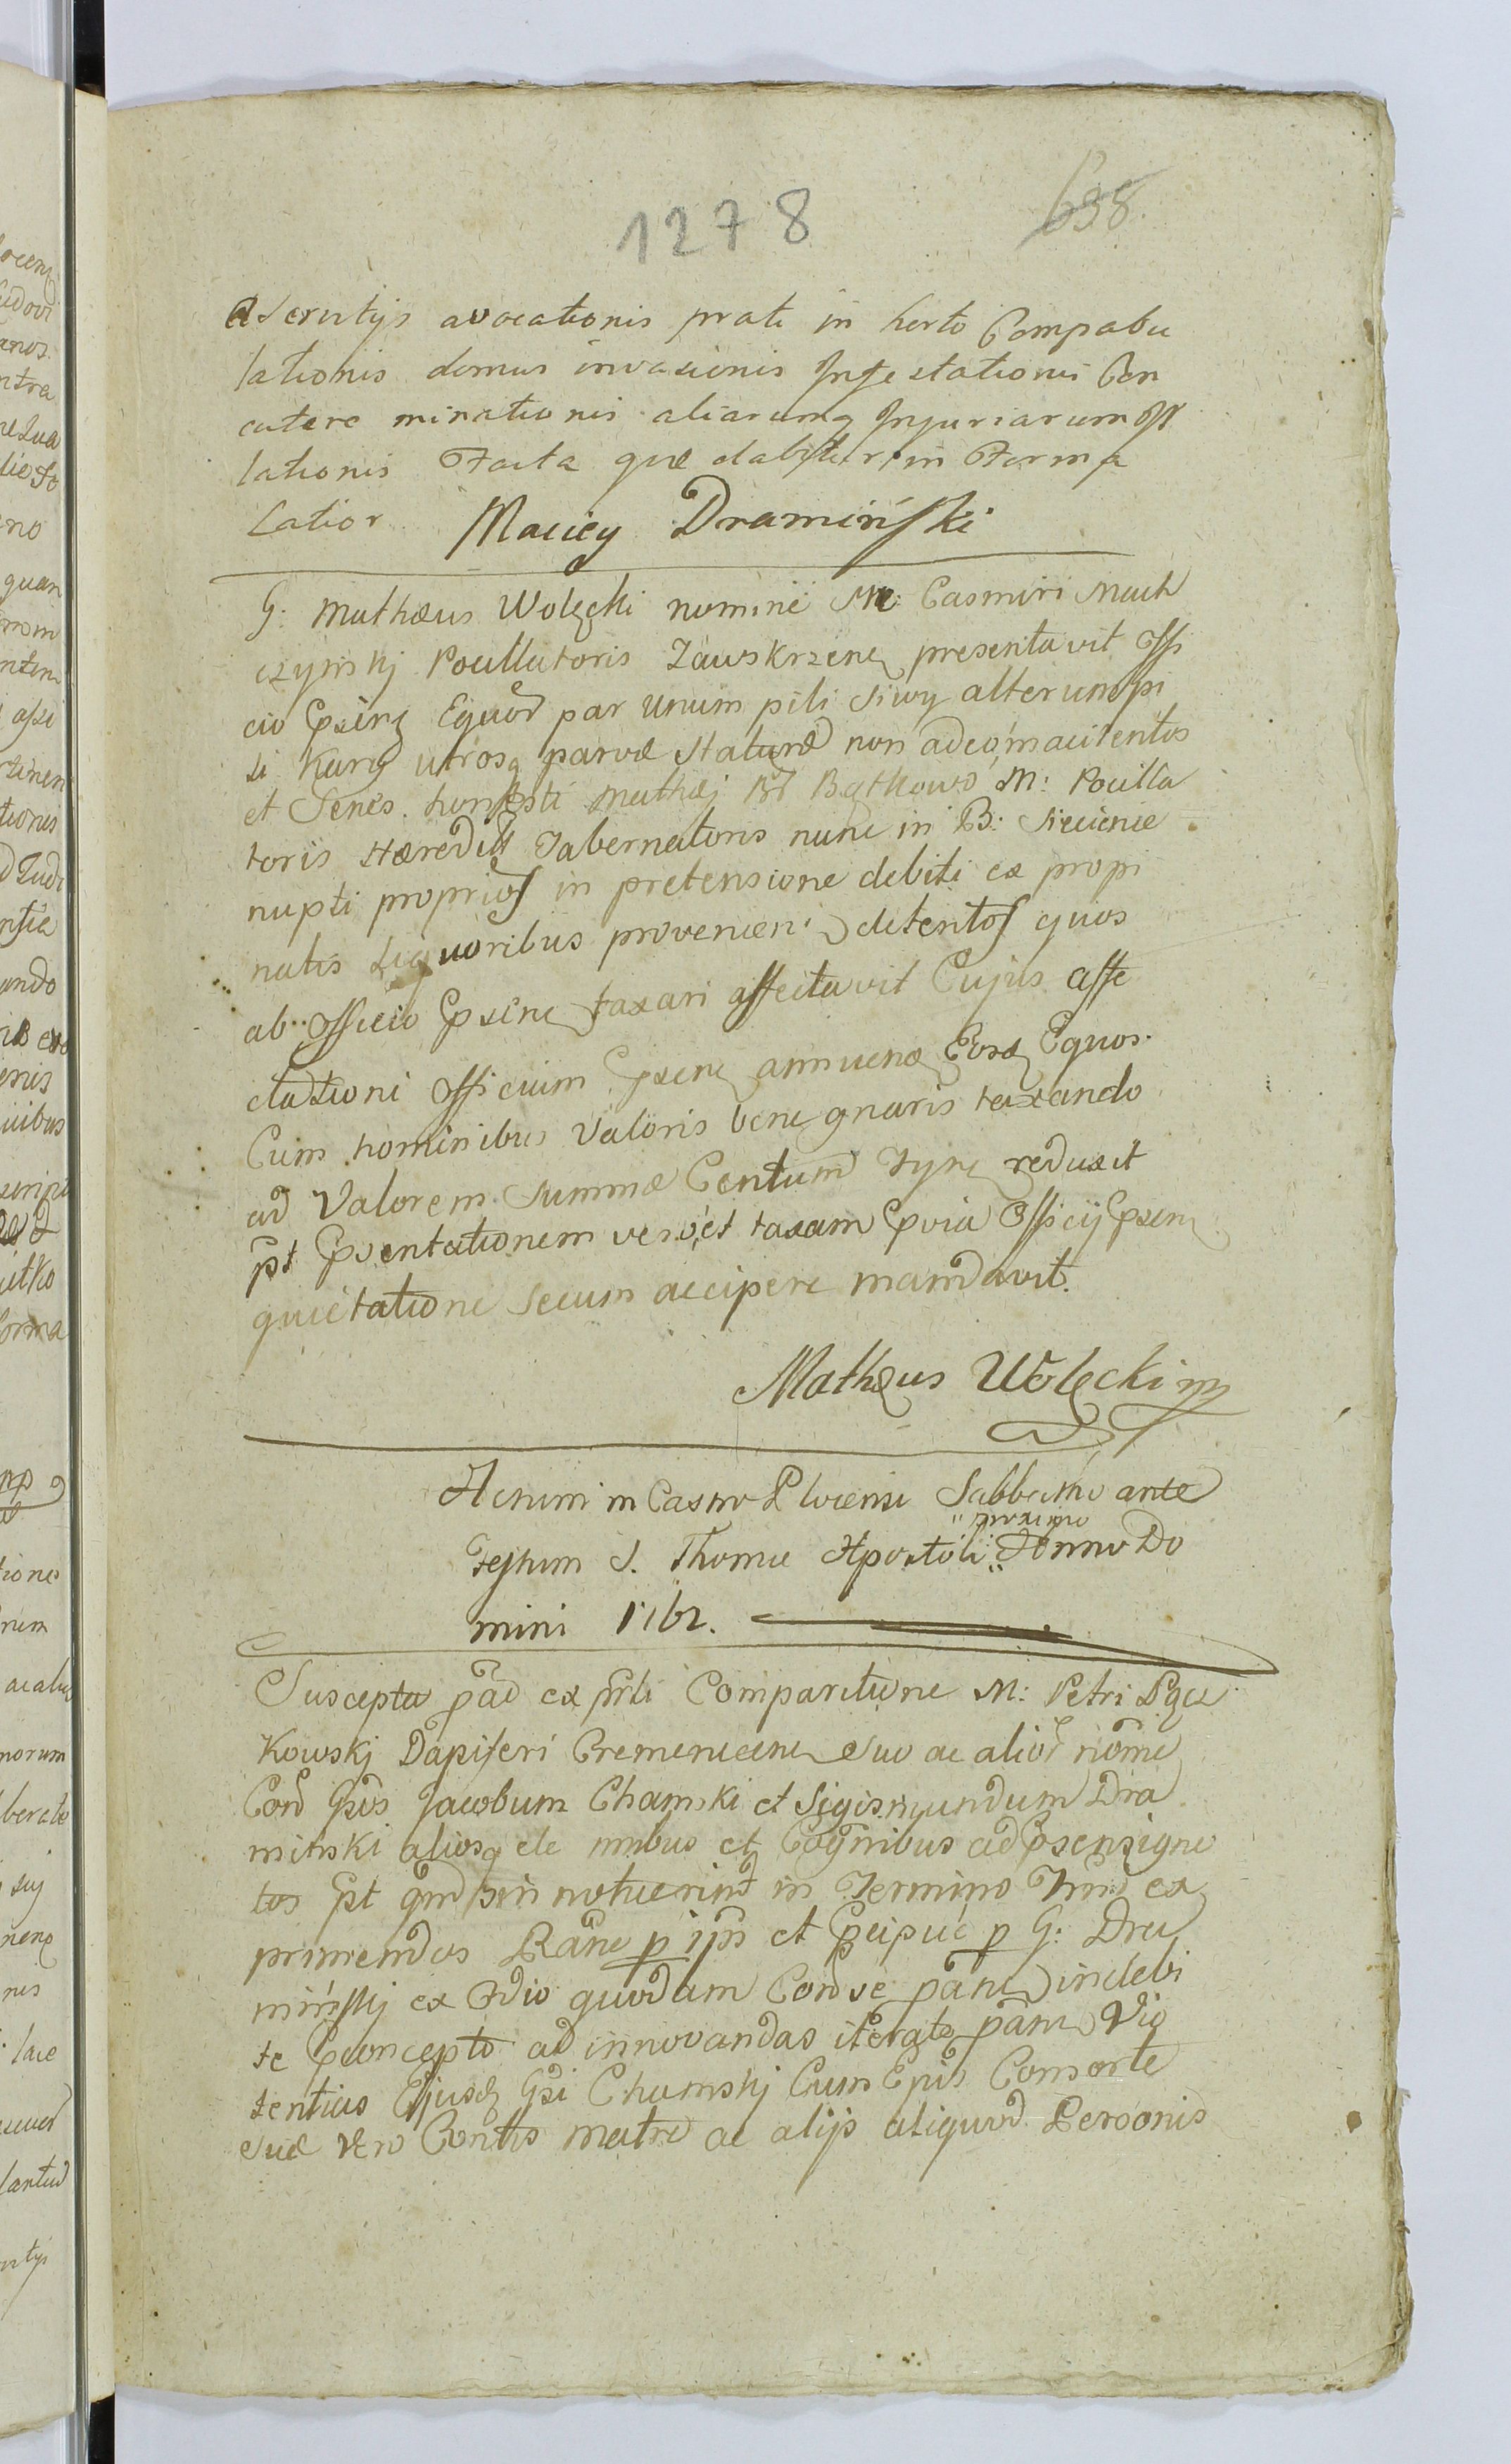 1278
638.
a Servitijs avocationis prati in horto Compabu
lationis domus invasionis Infestationis Con
cutere minationis aliarumq Injuriarum Il
lationis Facta quæ dabitur in Forma
Latior Maciey Dramiński
G: Mathæus Wolęcki nomine M: Casmiri Mach
czyńskj Pocillatoris Zawskrzen presentavit Offi
cio Epsing Equor par unum pili siwy alterum pi
li Kary utrosq parvæ Staturæ non adeo macilentos
et Senes. honesti Mathæj de Bątkowo M: Pocilla
toris Hæredis Tabernatoris nunc in B: Siecienie
nupti proprios in pretensione debiti ex propi
natis Liquoribus provenien detentos quos
ab Officio Epsene taxari affectavit Cujus affe
ctationi Officium Epsene annuens Eosq Equos
Cum hominibus Valoris bene gnaris taxando
ad Valorem Summæ Centum Tynf reduxit
pt Epsentationem vero et taxam Epvia Officij Epsene
quietatione secum accipere mandavit.
Mathæus Wolęcki mp
Actum in Castro Plocensi Sabbatho ante
proximo
Festum S. Thomæ Apostoli Anno Do
mini 1762.
Suscepta pad ex prti Comparitione M: Petri Pącz
Kowskj Dapiferi Cremenecene suo ac alior nomine
Cord Gsos Jacobum Chamski et Sigismundum Dra
minski aliosq de nnibus et Cognnibus ad Epsens igno
tos pt qnd sin notuerint in Termino Tnnd ex
primendos Rãne p ipn et Epcipue p G: Dra
mińskj ex Odio quodam Cord se pãne indebi
te Epconcepto ad innovandas iterato pãne Vio
lentias Ejusdq Gsi Chamskj Cum Epis Consorte
sua vero Contis matre ac alijs aliquod Personis